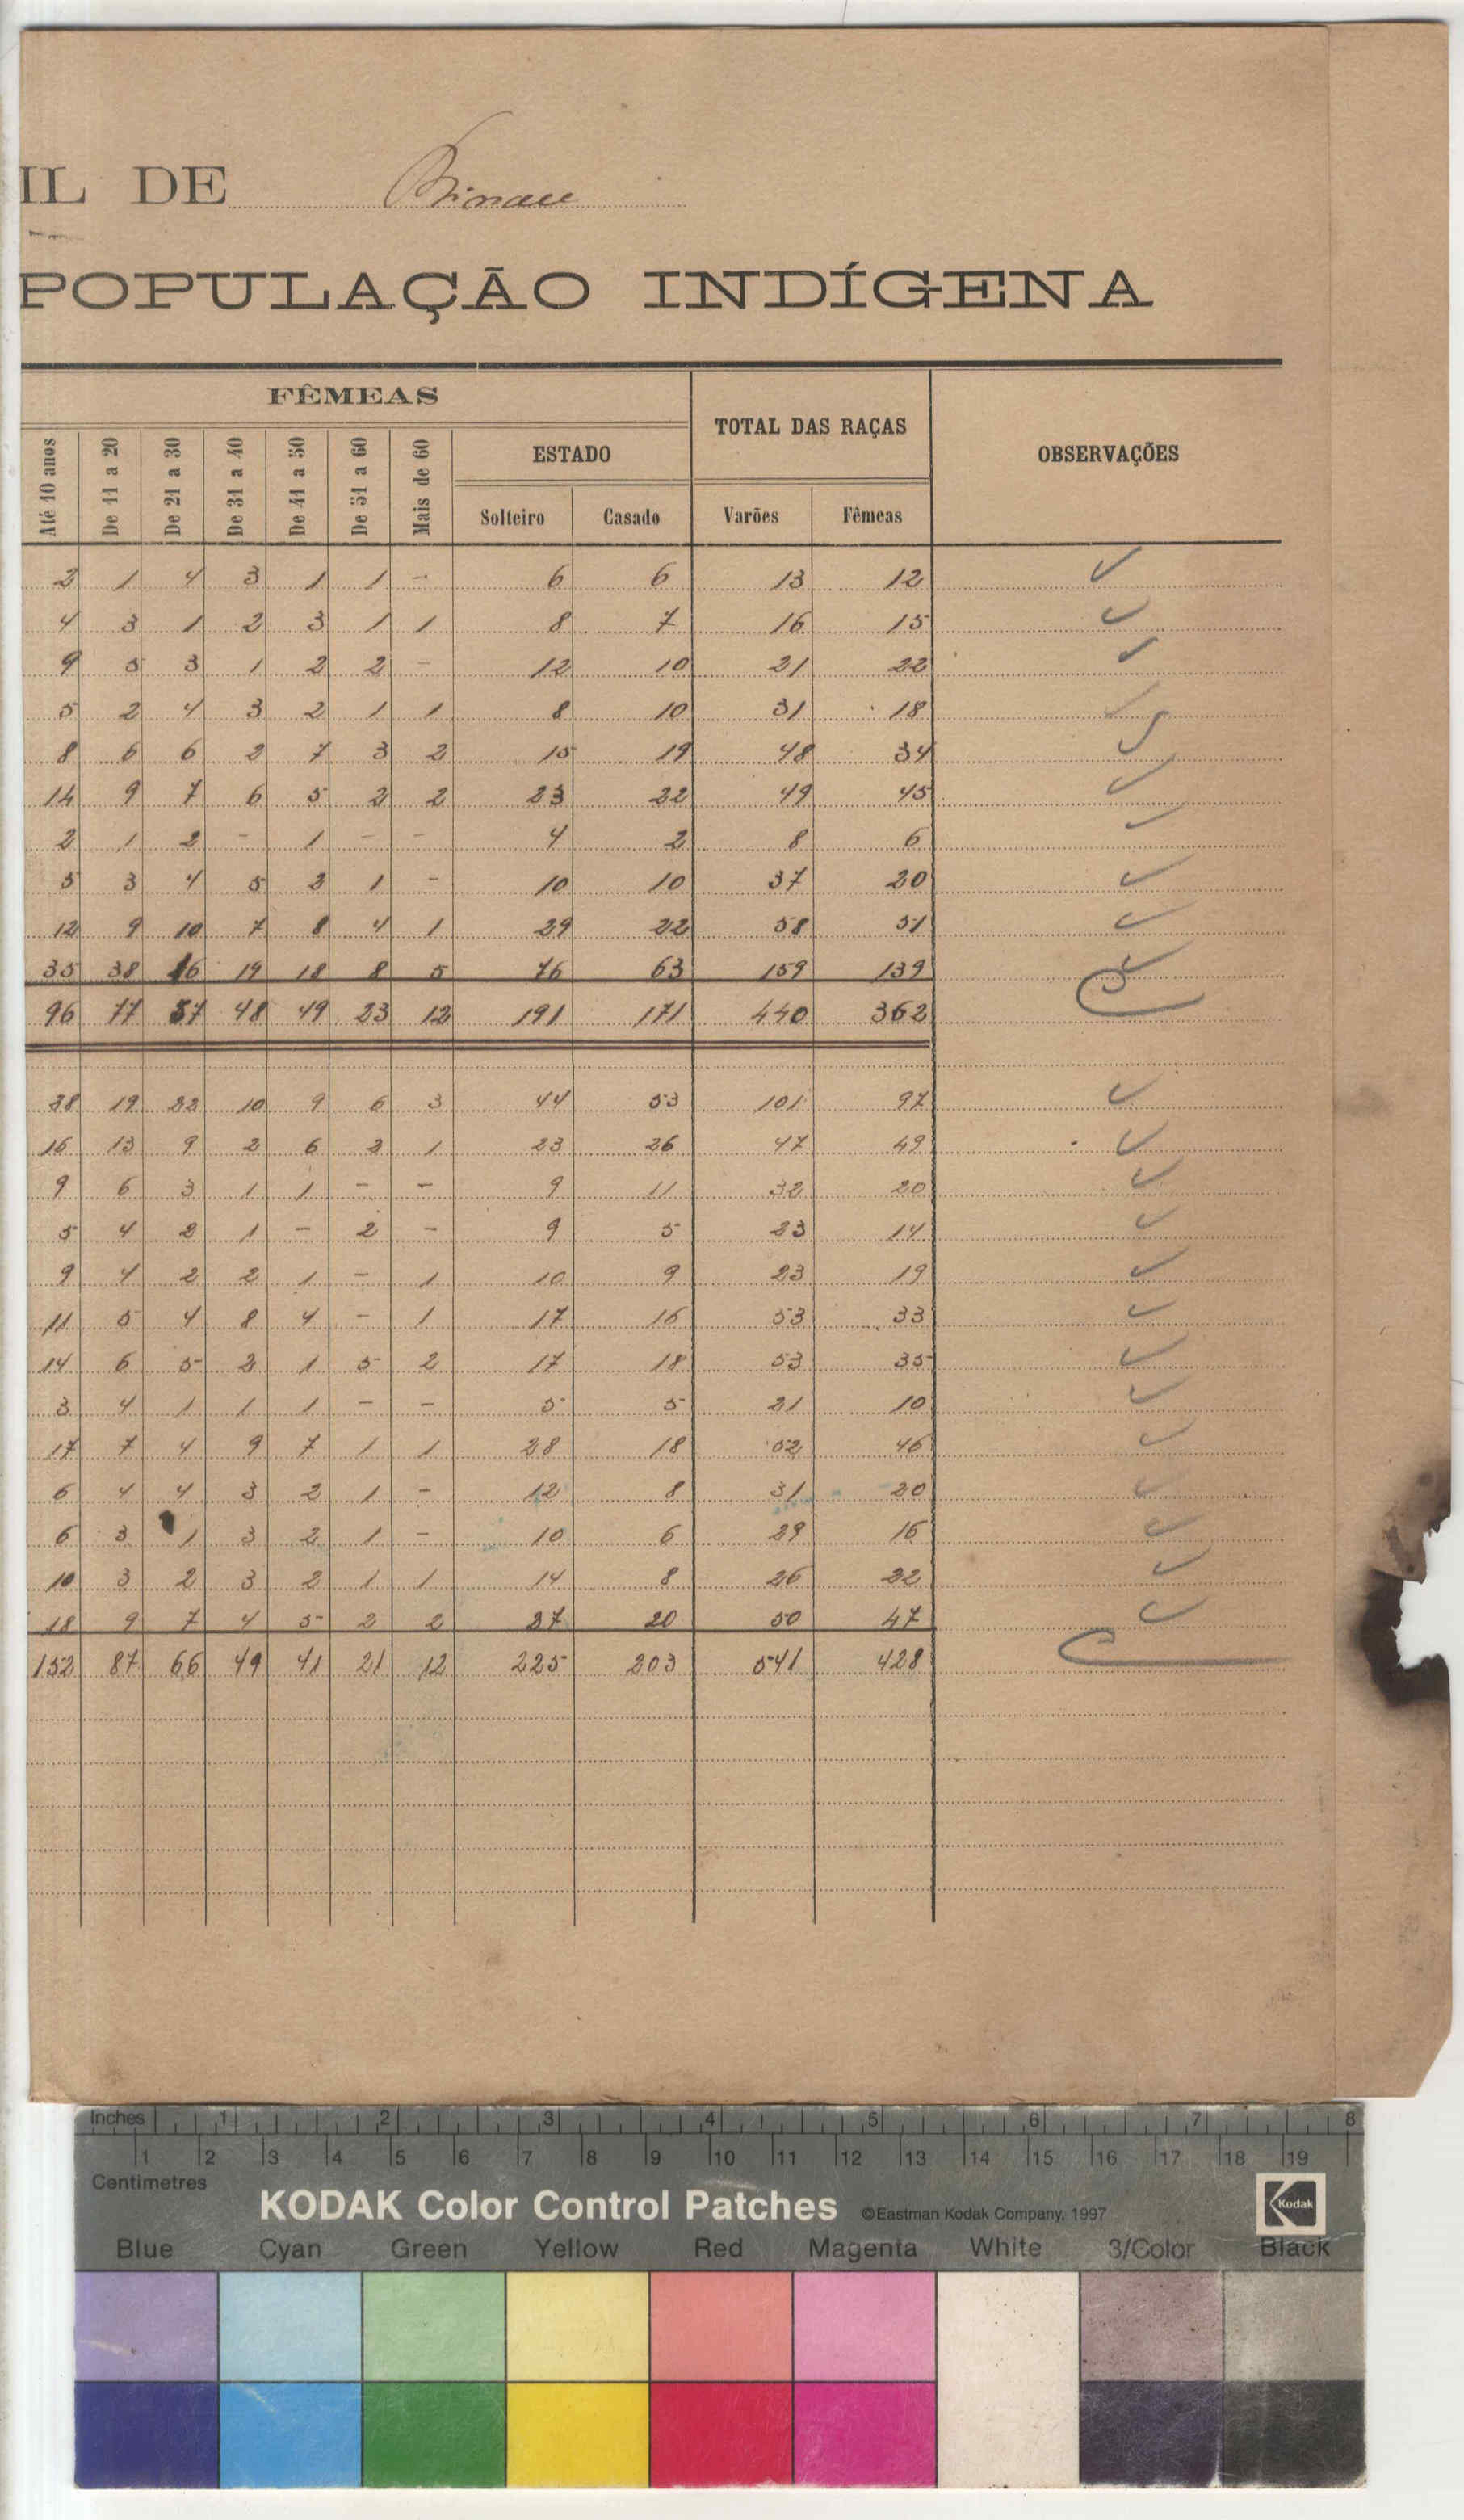 IL DE
POPULAÇÃO INDÍGENA
FÊMEAS
TOTAL DAS RAÇAS
OBSERVAÇÕES
Até 10 anos De 11 a 20 De 21 a 30 De 31 a 40 De 41 a 50 De 51 a 60 Mais de 60
ESTADO
Solteiro Casado Varões Fêmeas
2 1 4 3 1 1 - 6 6 13 12 ✓
4 3 1 2 3 1 1 8 7 16 15 ✓
9 5 3 1 2 2 - 12 10 21 22 ✓
5 2 4 3 2 1 1 8 10 31 18 ✓
8 6 6 2 7 3 2 15 19 48 34 ✓
14 9 7 6 5 2 2 23 22 49 45 ✓
2 1 2 - 1 - - 4 2 8 6 ✓
5 3 4 5 2 1 - 10 10 37 20 ✓
12 9 10 7 8 4 1 29 22 58 51 ✓
35 38 16 19 18 8 5 76 63 159 139 ✓
96 77 57 48 49 23 12 191 171 440 362
28 19 22 10 9 6 3 44 53 101 97 ✓
16 13 9 2 6 2 1 23 26 47 49 ✓
9 6 3 1 1 - - 9 11 32 20 ✓
5 4 2 1 - 2 - 9 5 23 14 ✓
9 4 2 2 1 - 1 10 9 23 19 ✓
11 5 4 8 4 - 1 17 16 53 33 ✓
14 6 5 2 1 5 2 17 18 53 35 ✓
3 4 1 1 1 - - 5 5 21 10 ✓
17 7 4 9 7 1 1 28 18 52 46 ✓
6 4 4 3 2 1 - 12 8 31 20 ✓
6 3 1 3 2 1 - 10 6 29 16 ✓
10 3 2 3 2 1 1 14 8 26 22 ✓
18 9 7 4 5 2 2 27 20 50 47 ✓
152 87 66 49 41 21 12 225 203 541 428
Inches 1 2 3 4 5 6 7 8
1 2 3 4 5 6 7 8 9 10 11 12 13 14 15 16 17 18 19
Centimetres
KODAK Color Control Patches ©Eastman Kodak Company, 1997 Kodak
Blue Cyan Green Yellow Red Magenta White 3/Color Black